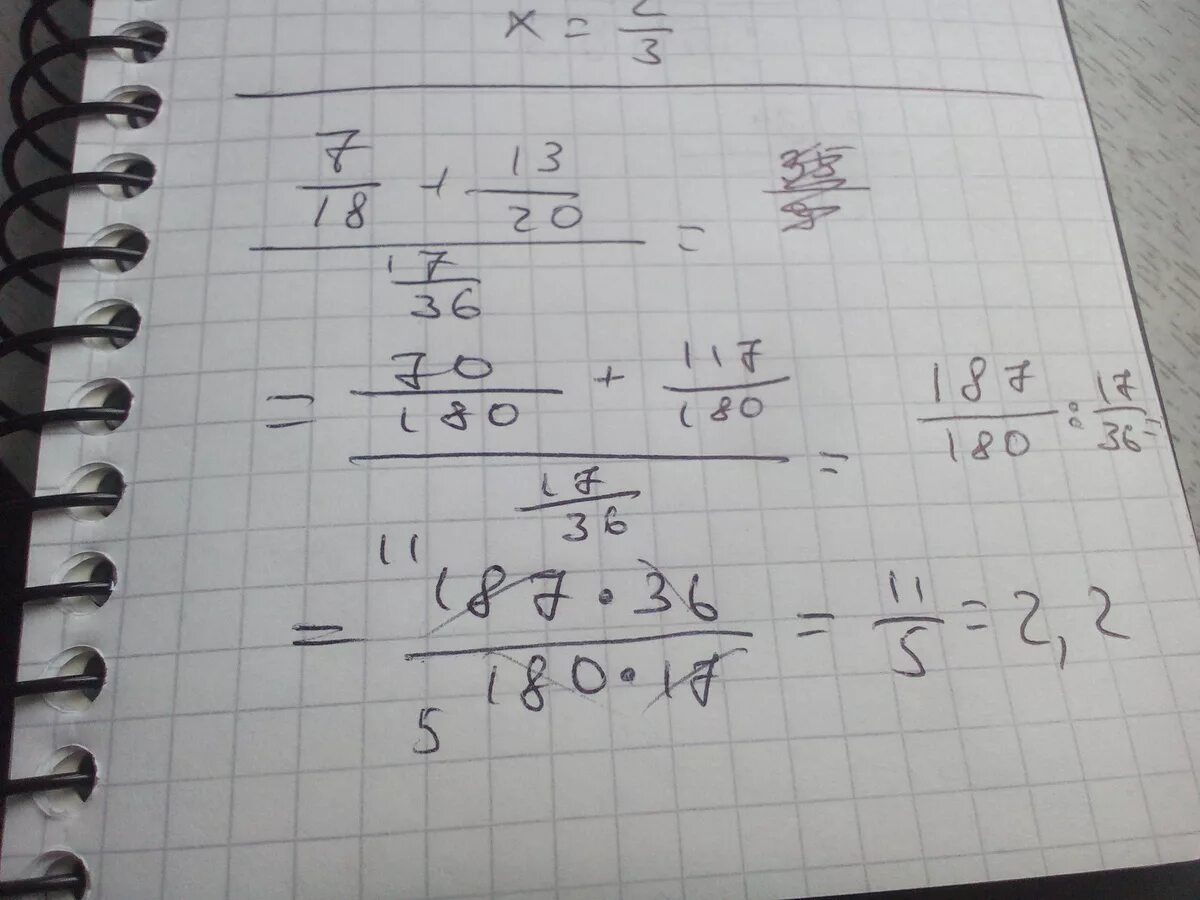 x = 2/3
(7/18 + 13/20) / (17/36) =
= (70/180 + 117/180) / (17/36) = 187/180 : 17/36 =
= (187 · 36) / (180 · 17) = 11/5 = 2,2
11
5